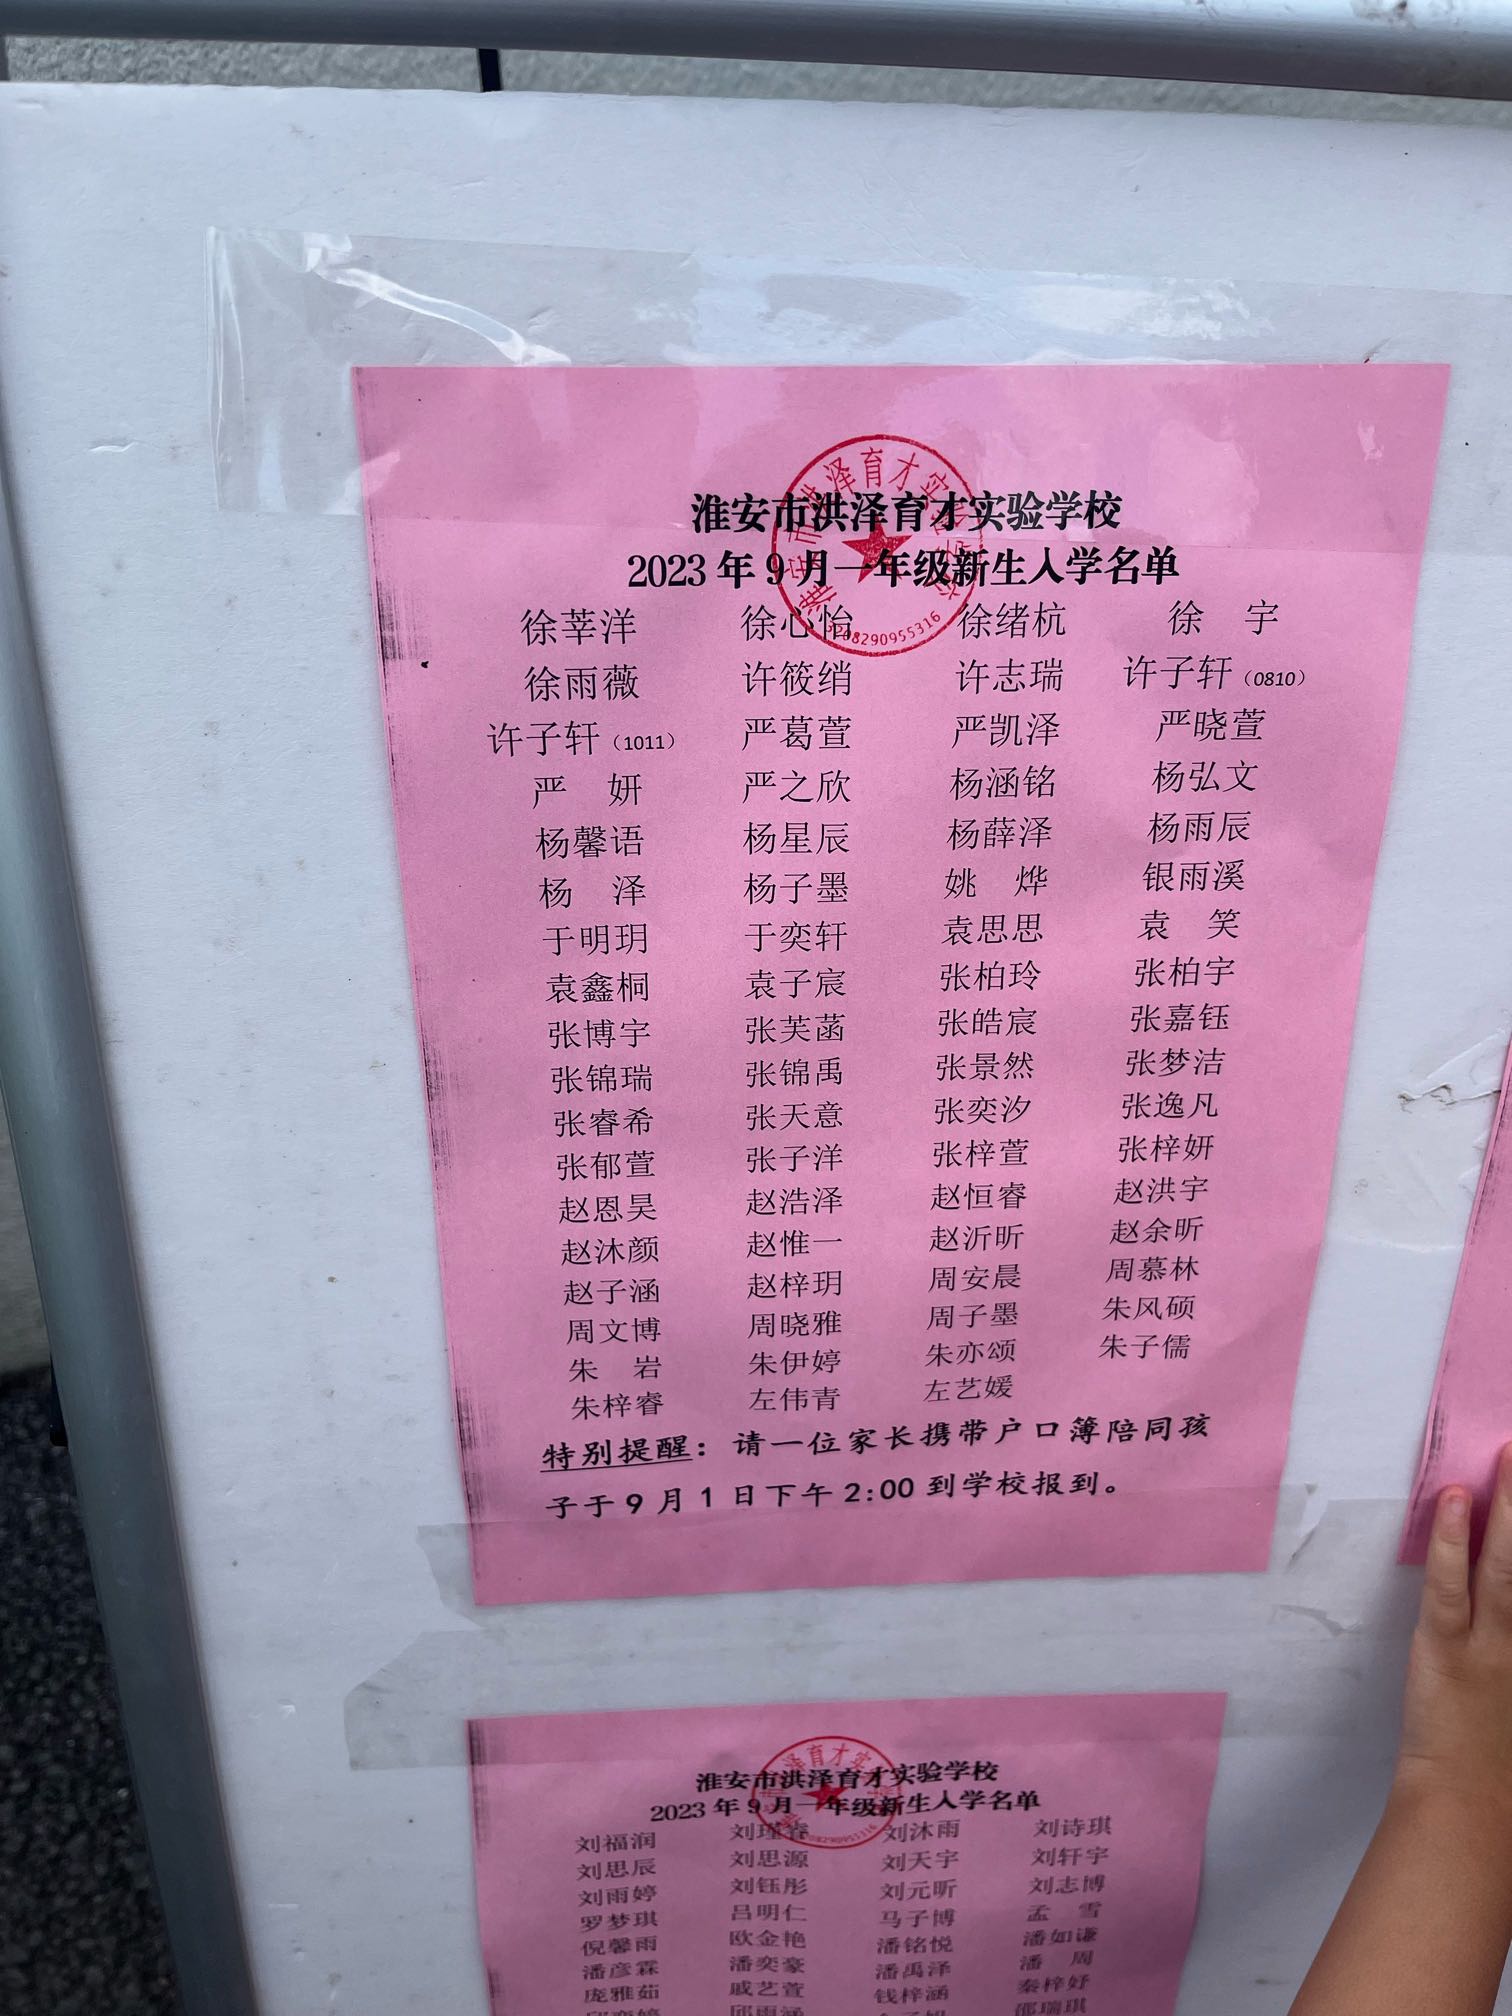 淮安市洪泽育才实验学校
2023年9月一年级新生入学名单
徐莘洋 徐心怡 徐绪杭 徐 宇
徐雨薇 许筱绡 许志瑞 许子轩（0810）
许子轩（1011） 严葛萱 严凯泽 严晓萱
严 妍 严之欣 杨涵铭 杨弘文
杨馨语 杨星辰 杨薛泽 杨雨辰
杨 泽 杨子墨 姚 烨 银雨溪
于明玥 于奕轩 袁思思 袁 笑
袁鑫桐 袁子宸 张柏玲 张柏宇
张博宇 张芙菡 张皓宸 张嘉钰
张锦瑞 张锦禹 张景然 张梦洁
张睿希 张天意 张奕汐 张逸凡
张郁萱 张子洋 张梓萱 张梓妍
赵恩昊 赵浩泽 赵恒睿 赵洪宇
赵沐颜 赵惟一 赵沂昕 赵余昕
赵子涵 赵梓玥 周安晨 周慕林
周文博 周晓雅 周子墨 朱风硕
朱 岩 朱伊婷 朱亦颂 朱子儒
朱梓睿 左伟青 左艺媛
特别提醒：请一位家长携带户口簿陪同孩
子于9月1日下午2:00到学校报到。
3208290955316
淮安市洪泽育才实验学校
2023年9月一年级新生入学名单
刘福润 刘瑾睿 刘沐雨 刘诗琪
刘思辰 刘思源 刘天宇 刘轩宇
刘雨婷 刘钰彤 刘元昕 刘志博
罗梦琪 吕明仁 马子博 孟 雪
倪馨雨 欧金艳 潘铭悦 潘如谦
潘彦霖 潘奕豪 潘禹泽 潘 周
庞雅茹 戚艺萱 钱梓涵 秦梓妤
邱雨涵 邵瑞琪